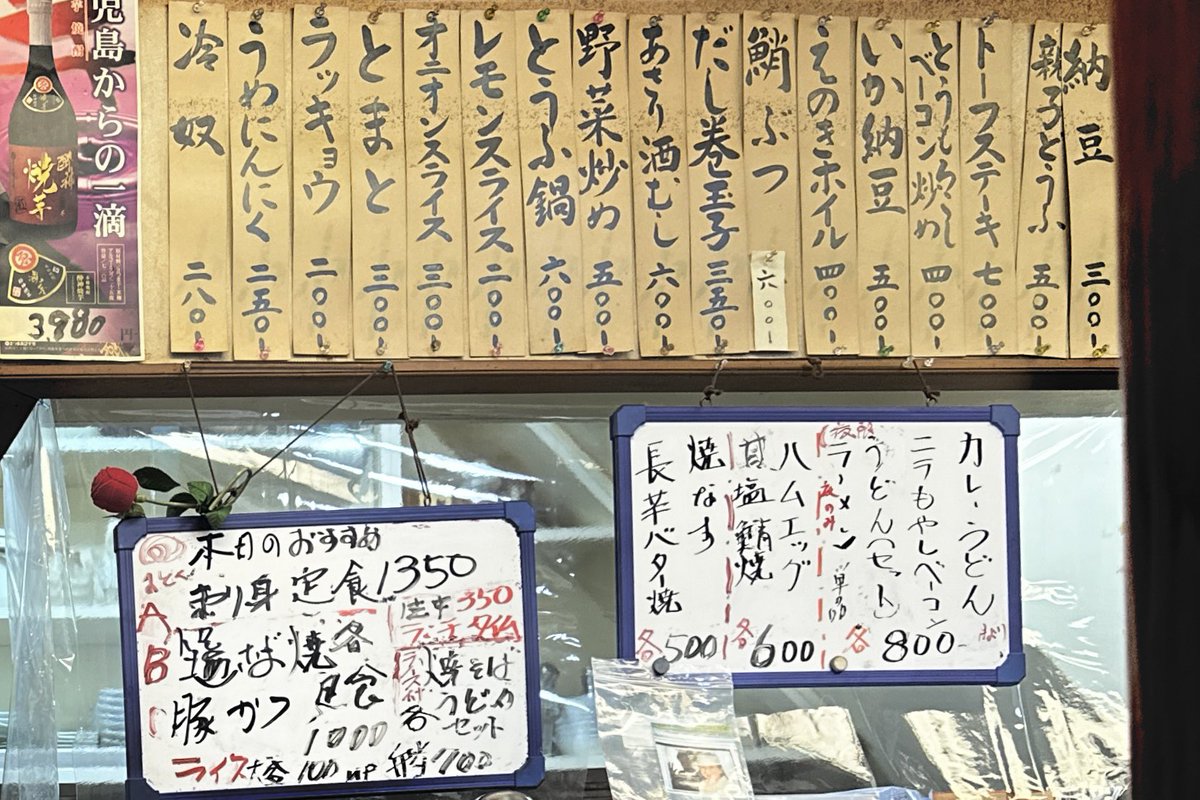 児島からの一滴
焼芋
3980円
納豆 三〇〇-
親子とうふ 五〇〇-
トーフステーキ 七〇〇-
ベーコン炒め 四〇〇-
いか納豆 五〇〇-
えのきホイル 四〇〇-
鮹ぶつ 六〇〇-
だし巻玉子 三五〇-
あさり酒むし 六〇〇-
野菜炒め 五〇〇-
とうふ鍋 六〇〇-
レモンスライス 二〇〇-
オニオンスライス 三〇〇-
とまと 三〇〇-
ラッキョウ 二〇〇-
うめにんにく 二五〇-
冷奴 二八〇-
カレーうどん
ニラもやしベーコン
うどんセット
ラーメン 単品
夜のみ
各800より
ハムエッグ
甘塩鯖焼
各600
焼なす
長芋バター焼
各500
本日のおすすめ
刺身定食1350
A 塩さば焼
B 豚かつ
各定食
1000
ライス大各100up
生中350
焼そば
うどん
セット
各